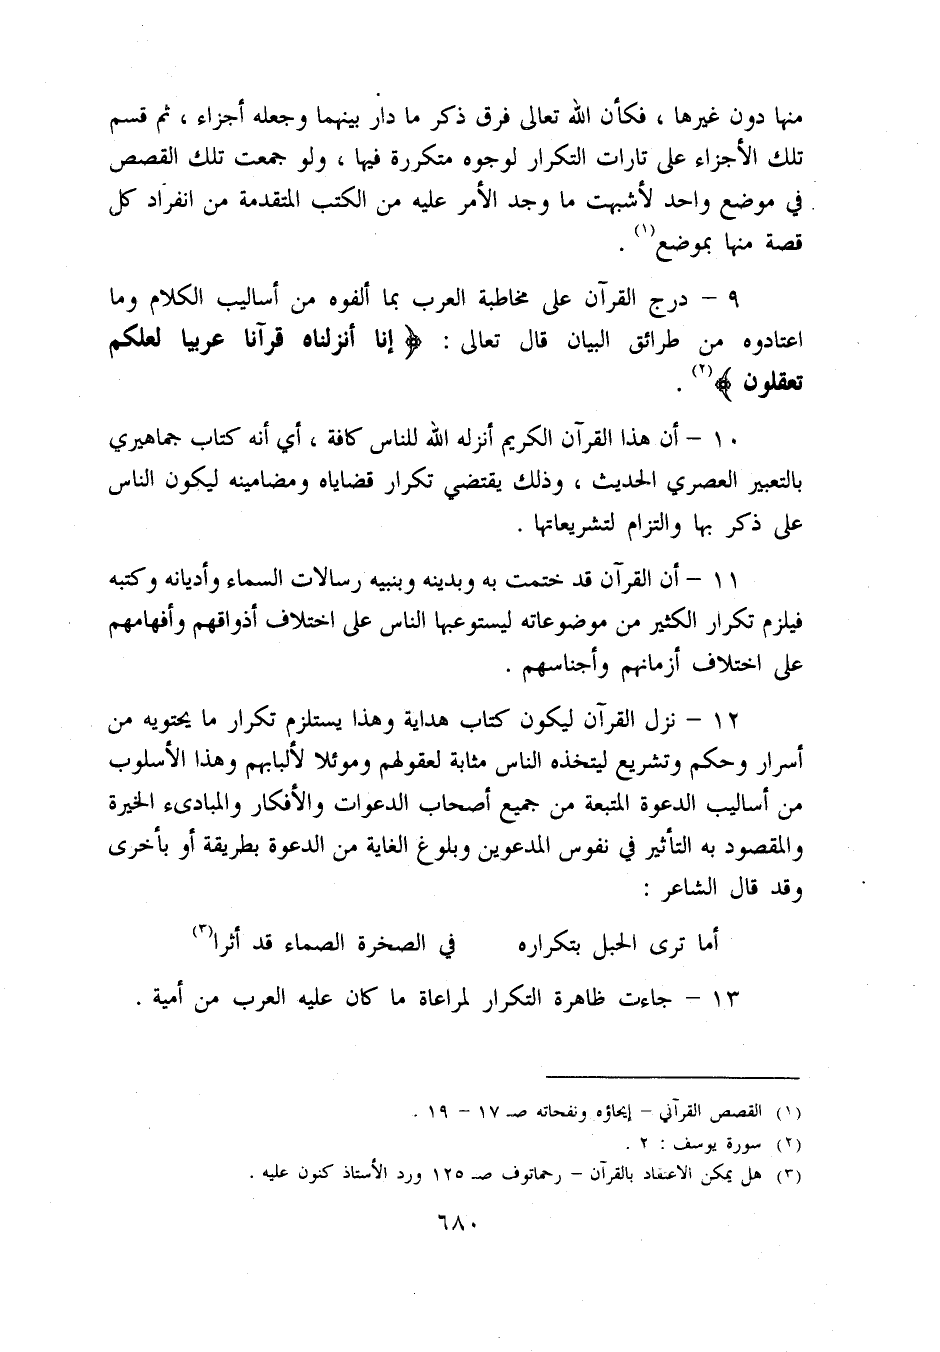 منها دون غيرها ، فكأن الله تعالى فرق ذكر ما دار بينهما وجعله أجزاء ، ثم قسم
تلك الأجزاء على تارات التكرار لوجوه متكررة فيها ، ولو جمعت تلك القصص
في موضع واحد لأشبهت ما وجد الأمر عليه من الكتب المتقدمة من انفراد كل
قصة منها بموضع(١) .
٩ - درج القرآن على مخاطبة العرب بما ألفوه من أساليب الكلام وما
اعتادوه من طرائق البيان قال تعالى : ﴿ إنا أنزلناه قرآنا عربيا لعلكم
تعقلون ﴾(٢) .
١٠ - أن هذا القرآن الكريم أنزله الله للناس كافة ، أي أنه كتاب جماهيري
بالتعبير العصري الحديث ، وذلك يقتضي تكرار قضاياه ومضامينه ليكون الناس
على ذكر بها والتزام لتشريعاتها .
١١ - أن القرآن قد ختمت به وبدينه وبنبيه رسالات السماء وأديانه وكتبه
فيلزم تكرار الكثير من موضوعاته ليستوعبها الناس على اختلاف أذواقهم وأفهامهم
على اختلاف أزمانهم وأجناسهم .
١٢ - نزل القرآن ليكون كتاب هداية وهذا يستلزم تكرار ما يحتويه من
أسرار وحكم وتشريع ليتخذه الناس مثابة لعقولهم وموئلا لألبابهم وهذا الأسلوب
من أساليب الدعوة المتبعة من جميع أصحاب الدعوات والأفكار والمبادىء الخيرة
والمقصود به التأثير في نفوس المدعوين وبلوغ الغاية من الدعوة بطريقة أو بأخرى
وقد قال الشاعر :
أما ترى الحبل بتكراره في الصخرة الصماء قد أثرا(٣)
١٣ - جاءت ظاهرة التكرار لمراعاة ما كان عليه العرب من أمية .
(١) القصص القرآني - إيحاؤه ونفحاته صـ ١٧ - ١٩ .
(٢) سورة يوسف : ٢ .
(٣) هل يمكن الاعتقاد بالقرآن - رحماتوف صـ ١٢٥ ورد الأستاذ كنون عليه .
٦٨٠